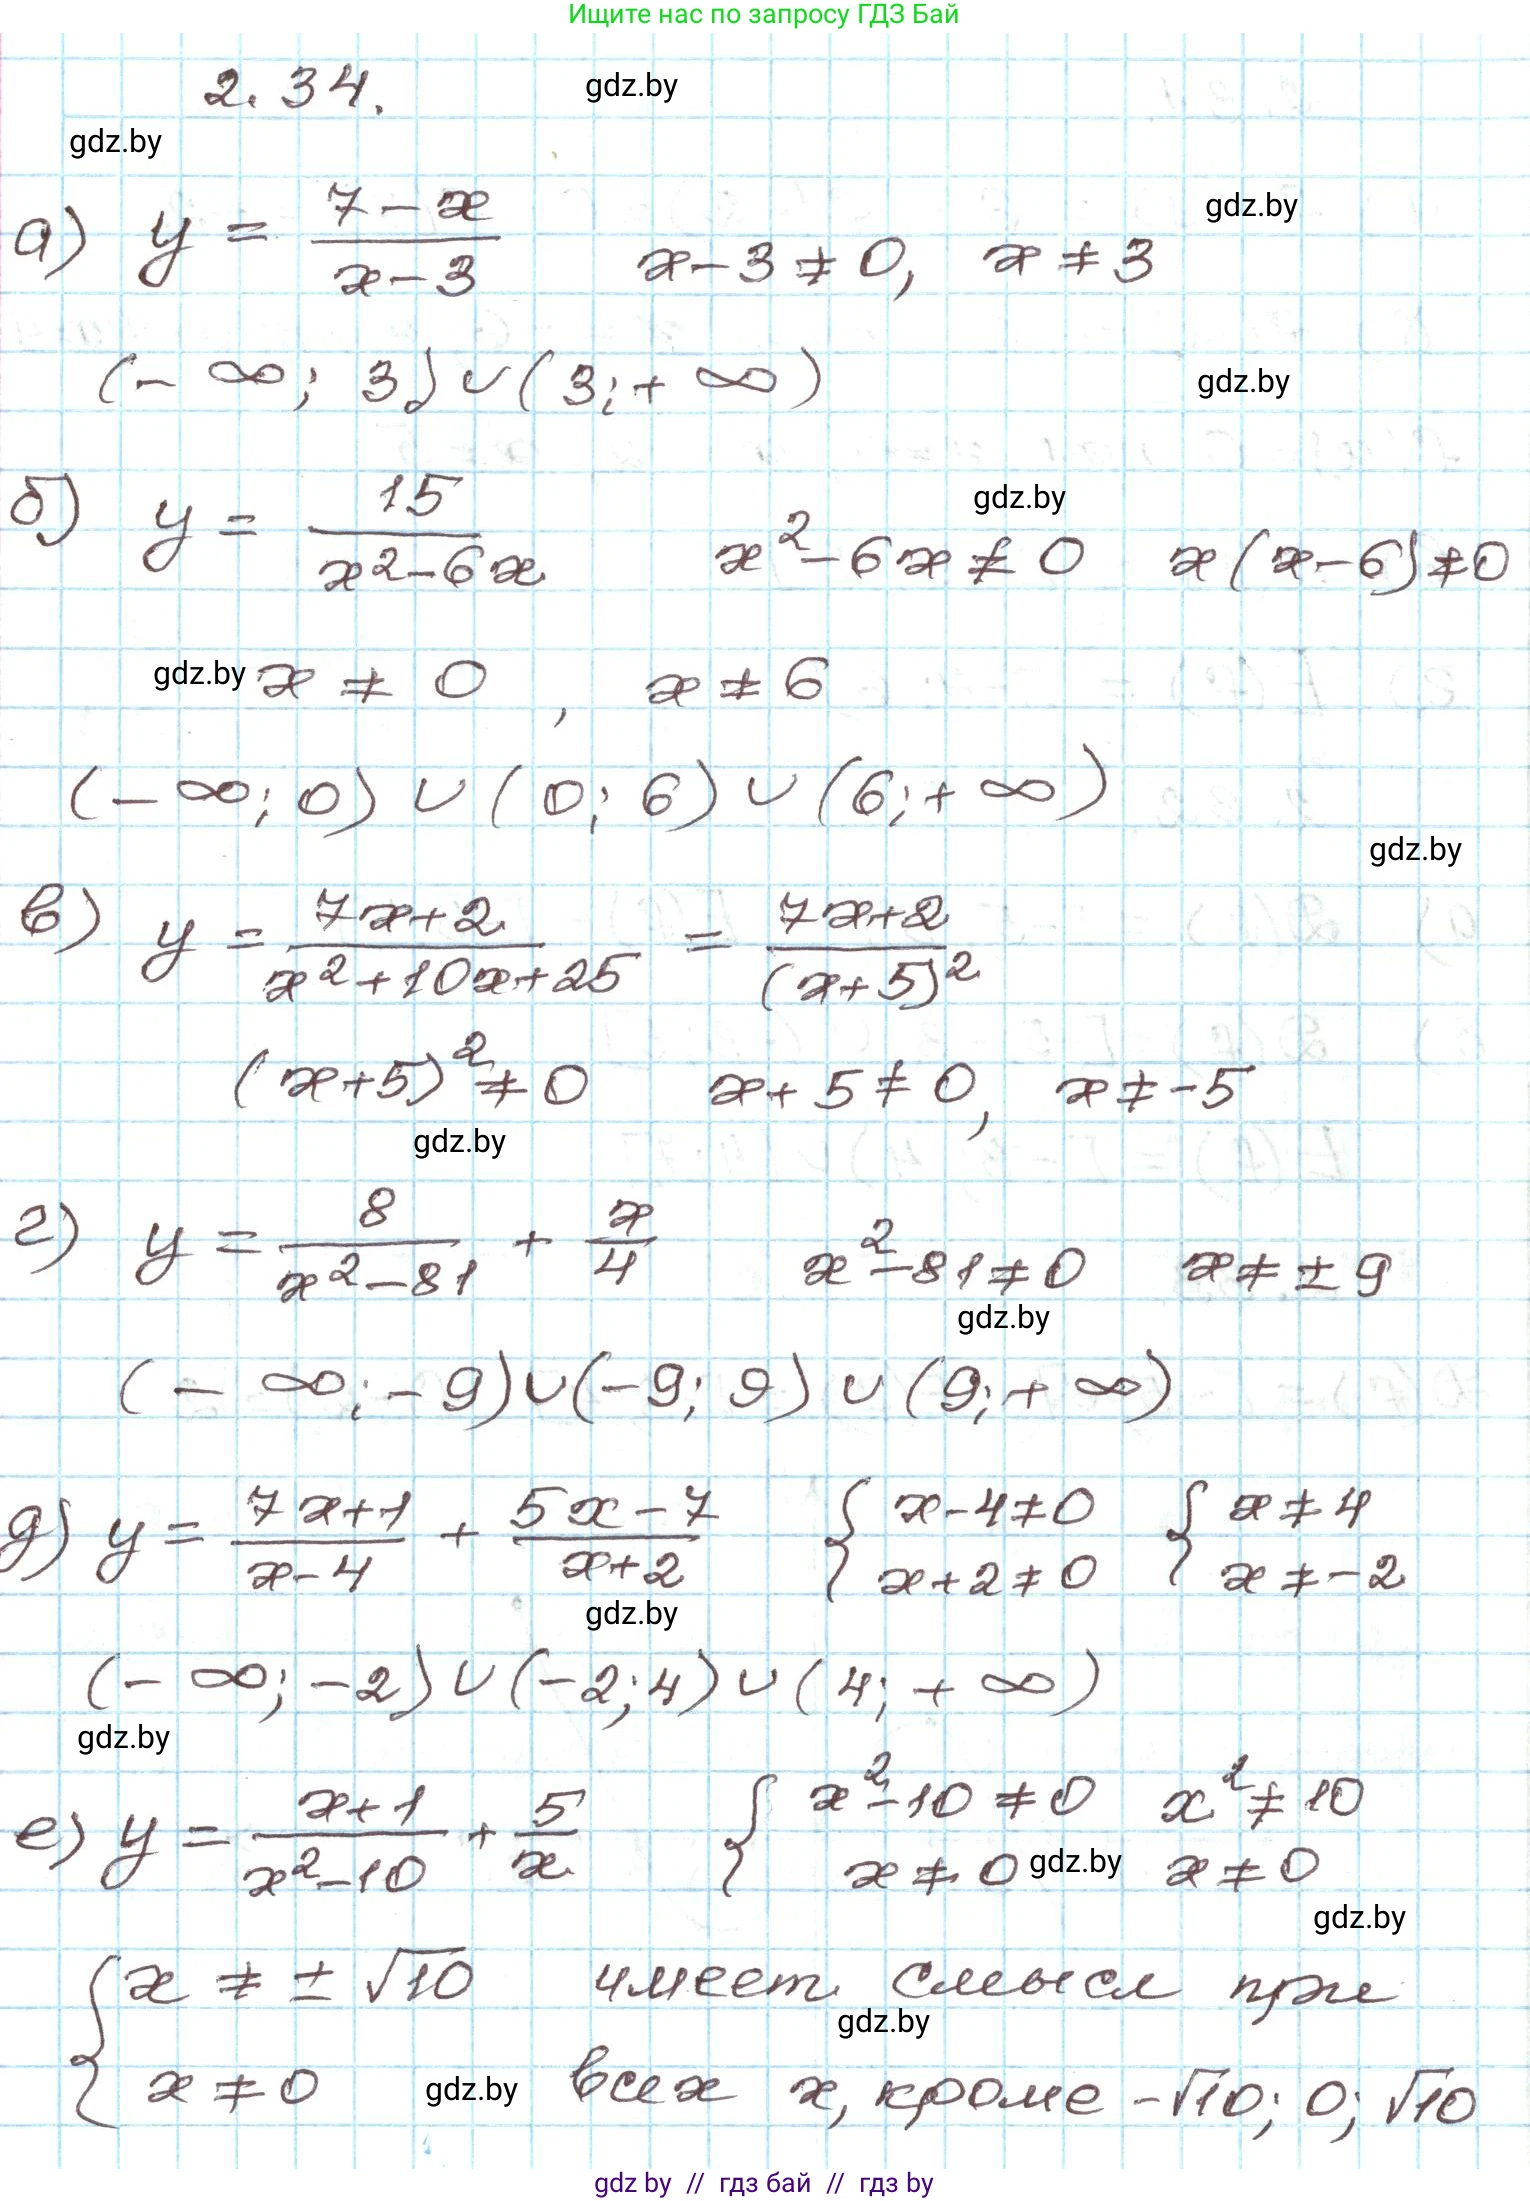 Ищите нас по запросу ГДЗ Бай
2.34. gdz.by
gdz.by
а) y = (7 − x)/(x − 3)   x − 3 ≠ 0, x ≠ 3 gdz.by
(− ∞; 3) ∪ (3; + ∞) gdz.by
б) y = 15/(x² − 6x)   x² − 6x ≠ 0   x(x − 6) ≠ 0 gdz.by
gdz.by x ≠ 0, x ≠ 6
(− ∞; 0) ∪ (0; 6) ∪ (6; + ∞)
gdz.by
в) y = (7x + 2)/(x² + 10x + 25) = (7x + 2)/(x + 5)²
(x + 5)² ≠ 0   x + 5 ≠ 0, x ≠ −5
gdz.by
г) y = 8/(x² − 81) + x/4   x² − 81 ≠ 0   x ≠ ± 9
gdz.by
(− ∞; − 9) ∪ (−9; 9) ∪ (9; + ∞)
д) y = (7x + 1)/(x − 4) + (5x − 7)/(x + 2)   { x − 4 ≠ 0   x + 2 ≠ 0   { x ≠ 4   x ≠ −2
gdz.by
(− ∞; −2) ∪ (−2; 4) ∪ (4; + ∞)
gdz.by
е) y = (x + 1)/(x² − 10) + 5/x   { x² − 10 ≠ 0   x ≠ 0 gdz.by   x² ≠ 10   x ≠ 0
gdz.by
{ x ≠ ± √10   имеет смысл при
gdz.by
x ≠ 0 gdz.by всех x, кроме −√10; 0; √10
gdz by // гдз бай // гдз by